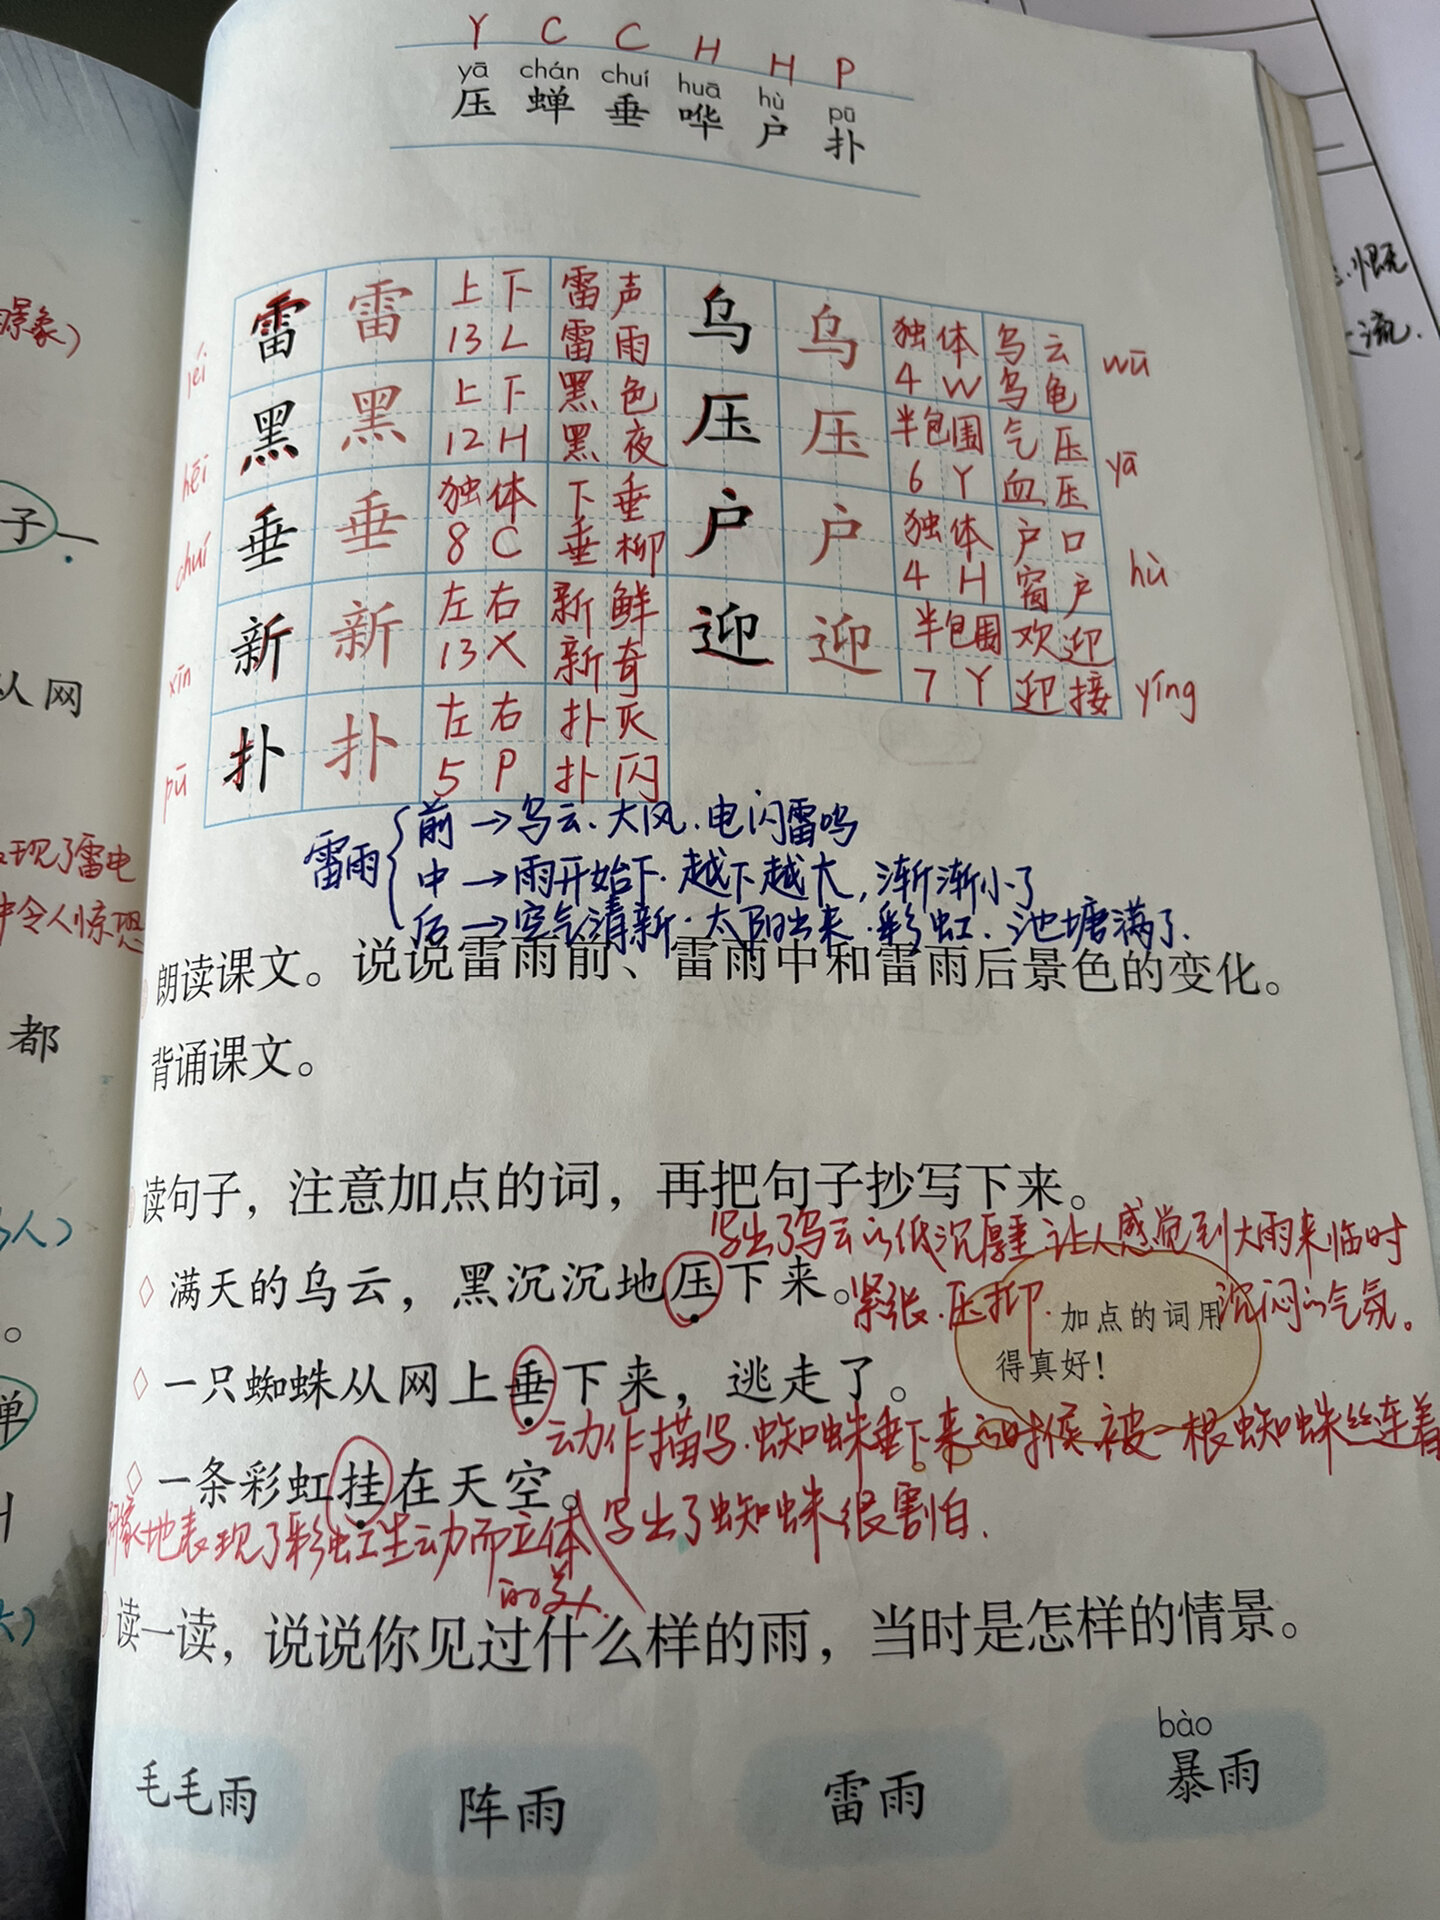 Y C C H H P
yā chán chuí huā hù pū
压 蝉 垂 哗 户 扑
雷 雷 上下 雷声 乌 乌 独体 乌云
léi 13 L 雷雨 4 W 乌龟 wū
黑 黑 上下 黑色 压 压 半包围 气压
hēi 12 H 黑夜 6 Y 血压 yā
垂 垂 独体 下垂 户 户 独体 户口
chuí 8 C 垂柳 4 H 窗户 hù
新 新 左右 新鲜 迎 迎 半包围 欢迎
xīn 13 X 新奇 7 Y 迎接 yíng
扑 扑 左右 扑灭
pū 5 P 扑闪
前→乌云、大风、电闪雷鸣
雷雨 中→雨开始下、越下越大,渐渐小了
后→空气清新、太阳出来、彩虹、池塘满了.
朗读课文。说说雷雨前、雷雨中和雷雨后景色的变化。
背诵课文。
读句子，注意加点的词，再把句子抄写下来。
写出了乌云的低沉厚重,让人感觉到大雨来临时
◇ 满天的乌云，黑沉沉地压下来。
紧张、压抑、沉闷的气氛。
加点的词用
得真好！
◇ 一只蜘蛛从网上垂下来，逃走了。
动作描写.蜘蛛垂下来的时候,被一根蜘蛛丝连着
◇ 一条彩虹挂在天空。
写出了蜘蛛很害怕.
形象地表现了彩虹生动而立体
的美.
读一读，说说你见过什么样的雨，当时是怎样的情景。
bào
毛毛雨 阵雨 雷雨 暴雨
景象)
子
从网
现了雷电
令人惊恐
都
人)
。
蝉
慨
流.